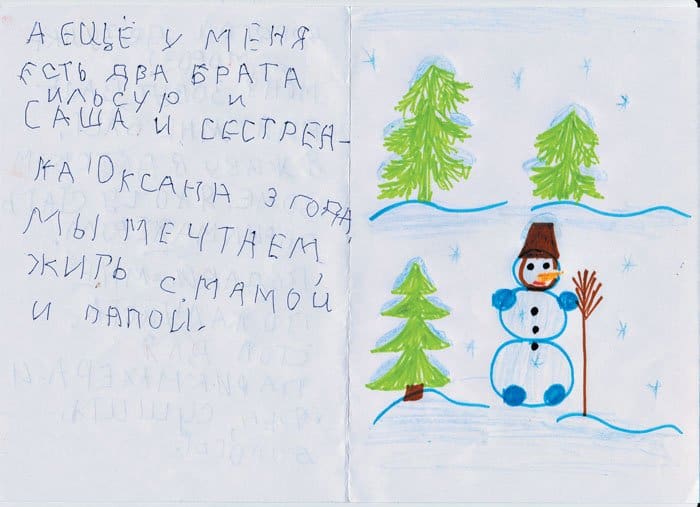 А ЕЩЁ У МЕНЯ
ЕСТЬ ДВА БРАТА
ИЛЬСУР И
САША И СЕСТРЕН-
КА ОКСАНА 3 ГОДА.
МЫ МЕЧТАЕМ
ЖИТЬ С МАМОЙ
И ПАПОЙ.